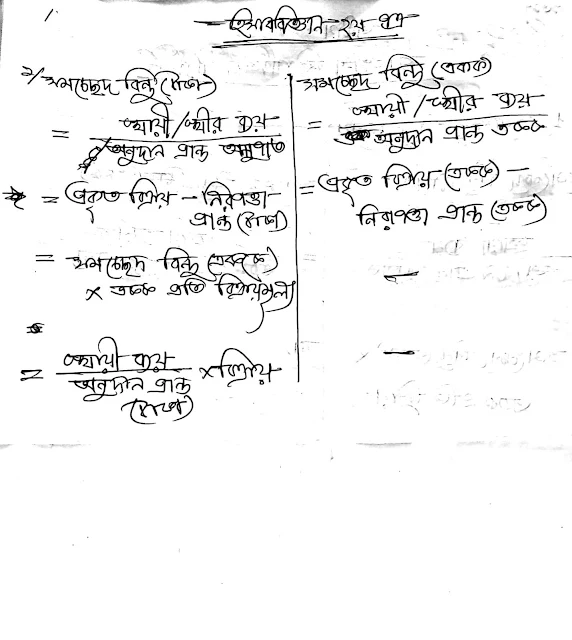 হিসাববিজ্ঞান ২য় পত্র
২/ সমচ্ছেদ বিন্দু (টাকা)
= স্থায়ী/স্থীর ব্যয়
অনুদান প্রান্ত অনুপাত
= প্রকৃত বিক্রয় - নিরাপত্তা
প্রান্ত (টাকা)
= সমচ্ছেদ বিন্দু (একক)
× একক প্রতি বিক্রয়মূল্য
= স্থায়ী ব্যয় × বিক্রয়
অনুদান প্রান্ত
(টাকা)
সমচ্ছেদ বিন্দু (একক)
= স্থায়ী/স্থীর ব্যয়
অনুদান প্রান্ত একক
= প্রকৃত বিক্রয় (একক) -
নিরাপত্তা প্রান্ত (একক)